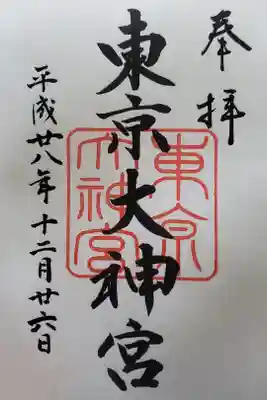 奉拝
東京大神宮
東京
大神宮
平成廿八年十二月廿六日